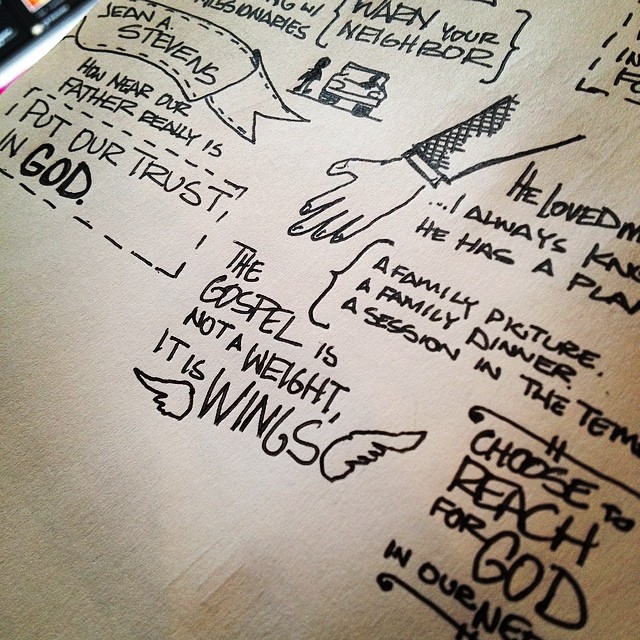 W/
MISSIONARIES
WARN YOUR
NEIGHBOR
JEAN A.
STEVENS
HOW NEAR OUR
FATHER REALLY IS
PUT OUR TRUST,
IN GOD.
HE LOVED
...I ALWAYS
HE HAS A PLAN
A FAMILY PICTURE.
A FAMILY DINNER.
A SESSION IN THE
THE
GOSPEL IS
NOT A WEIGHT,
IT IS WINGS
CHOOSE TO
REACH
FOR GOD
IN OUR